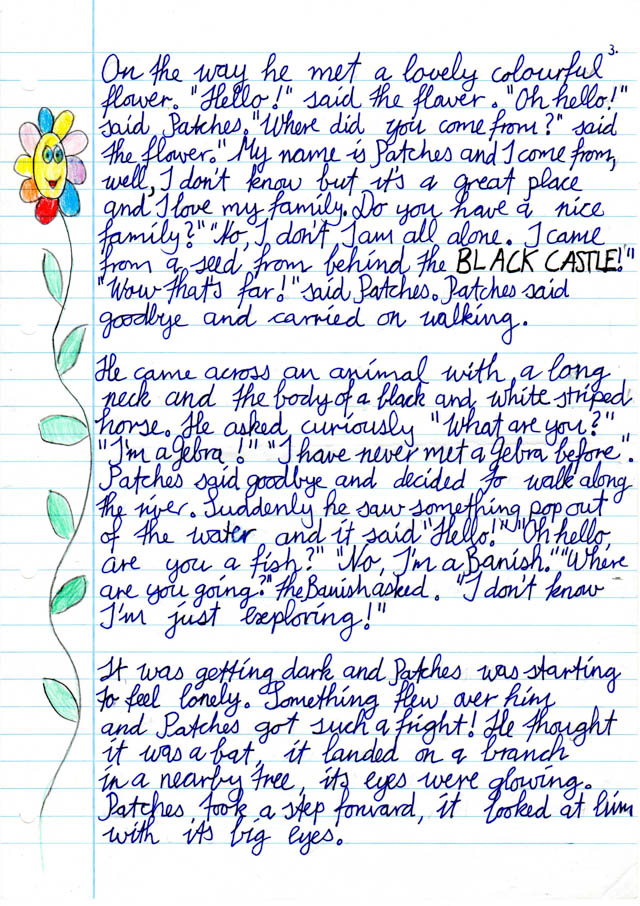 3.
On the way he met a lovely colourful
flower. "Hello!" said the flower. "Oh hello!"
said Patches. "Where did you come from?" said
the flower. "My name is Patches and I come from,
well, I don't know but it's a great place
and I love my family. Do you have a nice
family?" "No, I don't, I am all alone. I came
from a seed from behind the BLACK CASTLE!"
"Wow that's far!" said Patches. Patches said
goodbye and carried on walking.
He came across an animal with a long
neck and the body of a black and white striped
horse. He asked curiously "What are you?"
"I'm a Gebra!" "I have never met a Gebra before".
Patches said goodbye and decided to walk along
the river. Suddenly he saw something pop out
of the water and it said "Hello!" "Oh hello,
are you a fish?" "No, I'm a Banish." "Where
are you going?" the Banish asked. "I don't know
I'm just exploring!"
It was getting dark and Patches was starting
to feel lonely. Something flew over him
and Patches got such a fright! He thought
it was a bat, it landed on a branch
in a nearby tree, its eyes were glowing.
Patches took a step forward, it looked at him
with its big eyes.